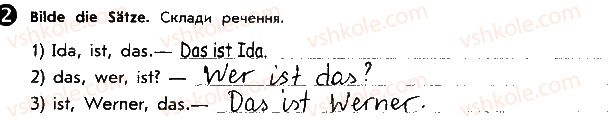 2 Bilde die Sätze. Склади речення.
1) Ida, ist, das.— Das ist Ida.
2) das, wer, ist? — Wer ist das?
3) ist, Werner, das.— Das ist Werner.
vshkole.com